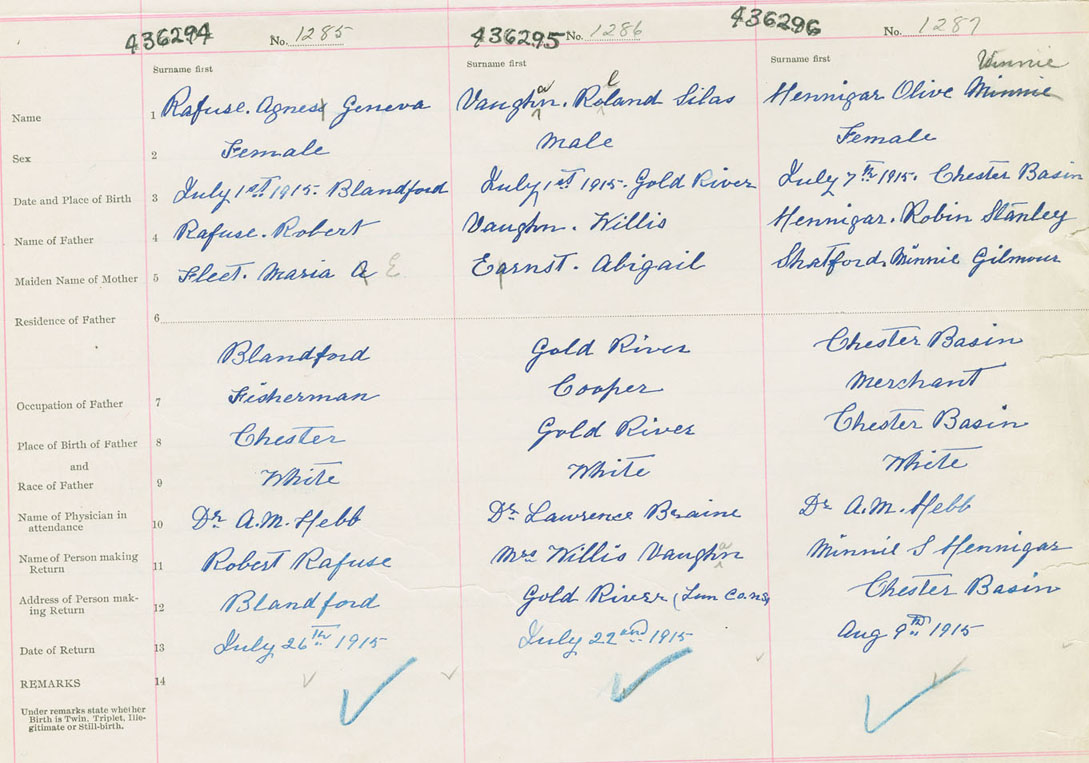 436294 No. 1285 436295 No. 1286 436296 No. 1287
Surname first Surname first Surname first Winnie
Name 1 Rafuse. Agnes Geneva Vaughan. Rolland Silas Hennigar Olive Minnie
Sex 2 Female Male Female
Date and Place of Birth 3 July 1st 1915. Blandford July 1st 1915. Gold River July 7th 1915. Chester Basin
Name of Father 4 Rafuse. Robert Vaughn. Willis Hennigar. Robin Stanley
Maiden Name of Mother 5 Fleet. Maria a E Earnst. Abigail Shatford. Minnie Gilmour
Residence of Father 6
Blandford Gold River Chester Basin
Occupation of Father 7 Fisherman Cooper Merchant
Place of Birth of Father 8 Chester Gold River Chester Basin
and
Race of Father 9 White White White
Name of Physician in
attendance 10 Dr A.M. Hebb Dr Lawrence Braine Dr A.M. Hebb
Name of Person making
Return 11 Robert Rafuse Mrs Willis Vaughan Minnie S Hennigar
Address of Person mak-
ing Return 12 Blandford Gold River (Lun Co. NS) Chester Basin
Date of Return 13 July 26th 1915 July 22nd 1915 Aug 9th 1915
REMARKS 14
Under remarks state whether
Birth is Twin, Triplet, Ille-
gitimate or Still-birth.